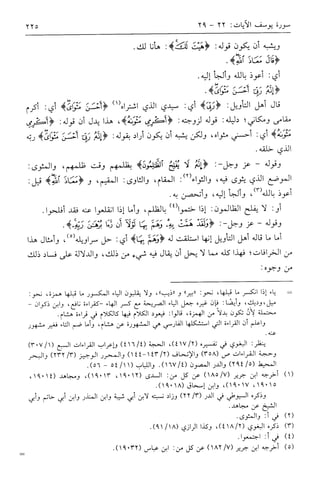 سورة يوسف الآيات: ٢٢ - ٢٩
٢٢٥
ويشبه أن يكون قوله: ﴿هَيْتَ لَكَ﴾: هأنا لك.
﴿قَالَ مَعَاذَ اللَّهِ﴾.
أي: أعوذ بالله وألجأ إليه.
﴿إِنَّهُ رَبِّي أَحْسَنَ مَثْوَايَ﴾.
قال أهل التأويل: ﴿رَبِّي﴾ أي: سيدي الذي اشتراه(١) ﴿أَحْسَنَ مَثْوَايَ﴾ أي: أكرم
مقامي ومكاني؛ دليله: قوله لزوجته: ﴿أَكْرِمِي مَثْوَاهُ﴾. هذا يدل أن قوله: ﴿أَكْرِمِي
مَثْوَاهُ﴾ أي: أحسني مثواه، ولكن يشبه أن يكون أراد بقوله: ﴿إِنَّهُ رَبِّي أَحْسَنَ مَثْوَايَ﴾ ربّه
الذي خلقه.
وقوله - عز وجل-: ﴿إِنَّهُ لَا يُفْلِحُ الظَّالِمُونَ﴾ بظلمهم وقت ظلمهم، والمثوى:
الموضع الذي يثوى فيه، والثواء(٢): المقام، والثاوى: المقيم، و﴿مَعَاذَ اللَّهِ﴾ قيل:
أعوذ بالله(٣)، وألجأ إليه، وأتحصن به.
أو: لا يفلح الظالمون: إذا ختموا(٤) بالظلم، وأما إذا انقلعوا عنه فقد أفلحوا.
وقوله - عز وجل-: ﴿وَلَقَدْ هَمَّتْ بِهِ وَهَمَّ بِهَا لَوْلَا أَنْ رَأَى بُرْهَانَ رَبِّهِ﴾.
أما ما قاله أهل التأويل إنها استلقت له ﴿وَهَمَّ بِهَا﴾ أي: حل سراويله(٥)، وأمثال هذا
من الخرافات؛ فهذا كله مما لا يحل أن يقال فيه شيء من ذلك، والدلالة على فساد ذلك
من وجوه:
= ياء إذا انكسر ما قبلها، نحو: «بير» و«ذيب»، ولا يقلبون الياء المكسور ما قبلها همزة، نحو:
ميل، وديك، وأيضًا: فإن غيره جعل الياء الصريحة مع كسر الهاء -كقراءة نافع، وابن ذكوان -
محتملة لأن تكون بدلاً من الهمزة، قالوا: فيعود الكلام فيها كالكلام في قراءة هشام.
واعلم أن القراءة التي استشكلها الفارسي هي المشهورة عن هشام، وأما ضم التاء فغير مشهور
عنه.
ينظر: البغوي في تفسيره (٤١٧/٢)، الحجة (٤١٦/٤) وإعراب القراءات السبع (٣٠٧/١)
وحجة القراءات ص (٣٥٨) والإتحاف (١٤٣/٢-١٤٤) والمحرر الوجيز (٢٣٢/٣) والبحر
المحيط (٢٩٤/٥) والدر المصون (١٦٧/٤). واللباب (٥٤/١١ - ٥٦).
(١) أخرجه ابن جرير (١٨٥/٧) عن كل من: السدى (١٩٠١٢، ١٩٠١٣)، ومجاهد (١٩٠١٤،
١٩٠١٥، ١٩٠١٧)، وابن إسحاق (١٩٠١٨).
وذكره السيوطي في الدر (٢٢/٣) وزاد نسبته لابن أبي شيبة وابن المنذر وابن أبي حاتم وأبي
الشيخ عن مجاهد.
(٢) في أ: والمثوى.
(٣) ذكره البغوي (٤١٨/٢)، وكذا الرازي (٩١/١٨).
(٤) في أ: اجتمعوا.
(٥) أخرجه ابن جرير (١٨٢/٧) عن كل من: ابن عباس (١٩٠٣٢) =